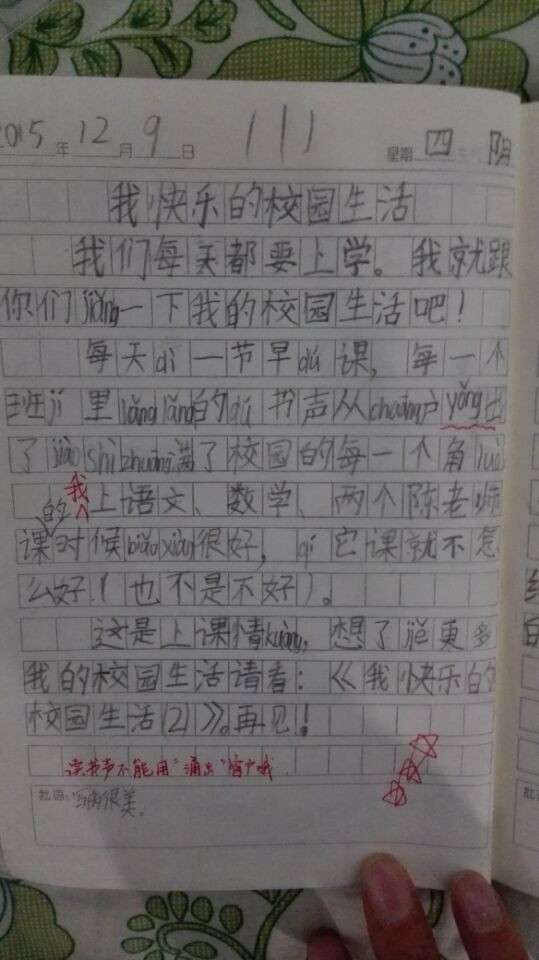 2015年12月9日 星期四 阴
我快乐的校园生活
我们每天都要上学。我就跟
你们jiǎng一下我的校园生活吧！
每天dì一节早dú课，每一个
班jí里lǎng lǎng的dú书声从chuāng户yǒng出
了jiào shì zhuāng满了校园的每一个角luò
的 我
上语文、数学、两个陈老师
课时候biǎo xiàn很好，qí它课就不怎
么好！（也不是不好）。
这是上课情kuàng，想了jiě更多
我的校园生活请看：《我快乐的
校园生活(2)》。再见！
读书声不能用"涌出"窗户哦．
批语：写的很美。